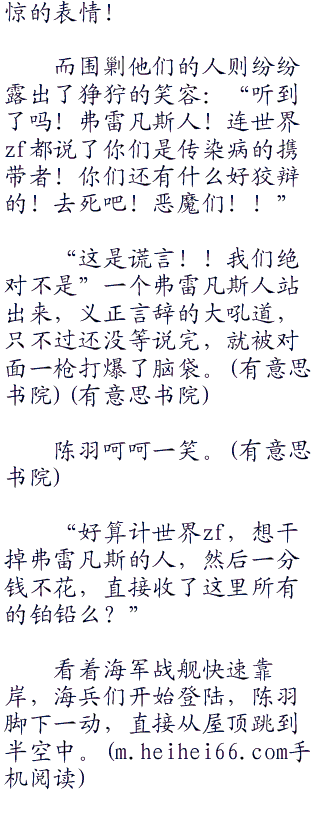 惊的表情！
而围剿他们的人则纷纷
露出了狰狞的笑容：“听到
了吗！弗雷凡斯人！连世界
zf都说了你们是传染病的携
带者！你们还有什么好狡辩
的！去死吧！恶魔们！！”
“这是谎言！！我们绝
对不是”一个弗雷凡斯人站
出来，义正言辞的大吼道，
只不过还没等说完，就被对
面一枪打爆了脑袋。(有意思
书院)(有意思书院)
陈羽呵呵一笑。(有意思
书院)
“好算计世界zf，想干
掉弗雷凡斯的人，然后一分
钱不花，直接收了这里所有
的铂铅么？”
看着海军战舰快速靠
岸，海兵们开始登陆，陈羽
脚下一动，直接从屋顶跳到
半空中。(m.heihei66.com手
机阅读)